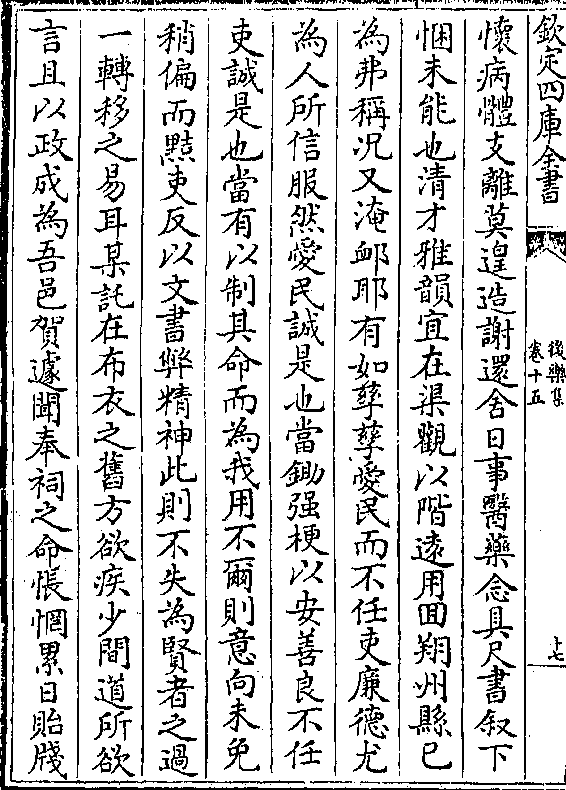 欽定四庫全書
後樂集
卷十五
十七
懷病體支離莫遑造謝還舍日事醫藥念具尺書叙下
悃未能也清才雅韻宜在渠觀以階遠用囬翔州縣已
為弗稱况又淹衅耶有如孳孳愛民而不任吏廉德尤
為人所信服然愛民誠是也當鋤强梗以安善良不任
吏誠是也當有以制其命而為我用不爾則意向未免
稍偏而黠吏反以文書弊精神此則不失為賢者之過
一轉移之易耳某託在布衣之舊方欲疾少間道所欲
言且以政成為吾邑賀遽聞奉祠之命悵惘累日貽牋